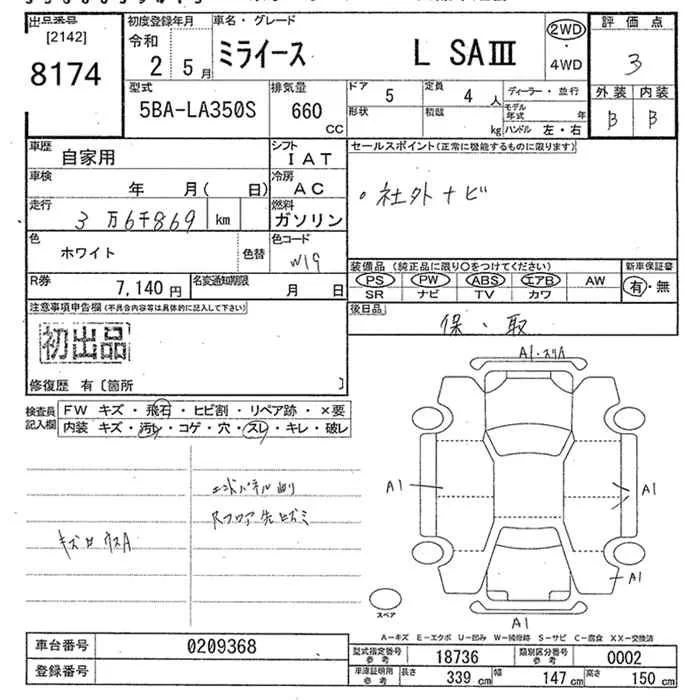 出品番号
[2142]
8174
初度登録年月
令和
2 5月
車名・グレード
ミライース L SAⅢ
2WD
・
4WD
評価点
3
外装 内装
B B
型式
5BA-LA350S
排気量
660
CC
ドア 5
定員 4 人
形状
積載 kg
ディーラー・並行
モデル年式 年
ハンドル 左・右
車歴 自家用
シフト IAT
車検 年 月( 日)
冷房 AC
走行 3万6千869 km
燃料 ガソリン
色 ホワイト
色替
色コード W19
R券 7,140円
名変通知期限 月 日
セールスポイント(正常に機能するものに限ります)
。社外ナビ
装備品 (純正品に限り○をつけてください)
PS PW ABS エアB AW
SR ナビ TV カワ
新車保証書
有・無
後日品
保・取
注意事項申告欄(不具合内容等は具体的に記入して下さい)
初出品
修復歴 有〔箇所 〕
検査員記入欄
FW キズ・飛石・ヒビ割・リペア跡・×要
内装 キズ・汚レ・コゲ・穴・スレ・キレ・破レ
A1・スリA
A1
A1
A1
A1
スペア
Rフロア先ヒズミ
A-キズ E-エクボ U-凹み W-補修跡 S-サビ C-腐食 XX-交換済
車台番号 0209368
登録番号
型式指定番号 参考 18736
類別区分番号 参考 0002
車庫証明用 参考
長さ 339 cm
幅 147 cm
高さ 150 cm